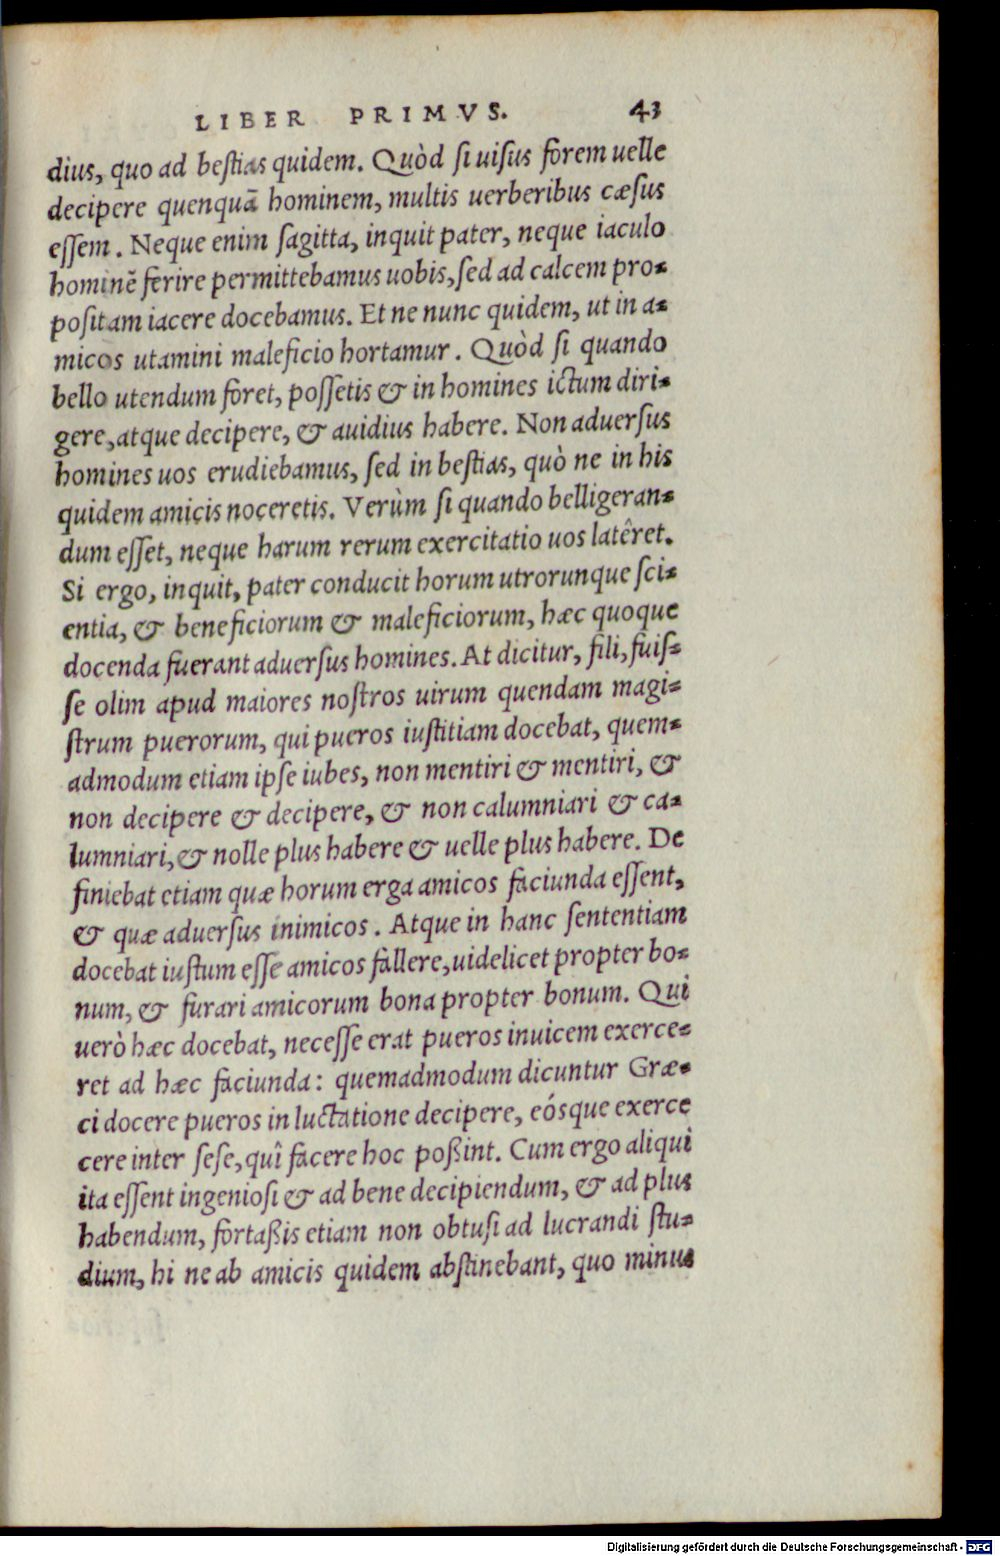 LIBER PRIMVS. 43
dius, quo ad bestias quidem. Quòd si uisus forem uelle
decipere quenquā hominem, multis uerberibus cæsus
essem. Neque enim sagitta, inquit pater, neque iaculo
hominē ferire permittebamus uobis, sed ad calcem pro-
positam iacere docebamus. Et ne nunc quidem, ut in a-
micos utamini maleficio hortamur. Quòd si quando
bello utendum foret, possetis & in homines ictum diri-
gere, atque decipere, & auidius habere. Non aduersus
homines uos erudiebamus, sed in bestias, quò ne in his
quidem amicis noceretis. Verùm si quando belligeran-
dum esset, neque harum rerum exercitatio uos latêret.
Si ergo, inquit, pater conducit horum utrorunque sci-
entia, & beneficiorum & maleficiorum, hæc quoque
docenda fuerant aduersus homines. At dicitur, fili, fuis-
se olim apud maiores nostros uirum quendam magi-
strum puerorum, qui pueros iustitiam docebat, quem-
admodum etiam ipse iubes, non mentiri & mentiri, &
non decipere & decipere, & non calumniari & ca-
lumniari, & nolle plus habere & uelle plus habere. De
finiebat etiam quæ horum erga amicos faciunda essent,
& quæ aduersus inimicos. Atque in hanc sententiam
docebat iustum esse amicos fallere, uidelicet propter bo-
num, & furari amicorum bona propter bonum. Qui
uerò hæc docebat, necesse erat pueros inuicem exerce-
ret ad hæc faciunda: quemadmodum dicuntur Græ-
ci docere pueros in luctatione decipere, eósque exerce
cere inter sese, quî facere hoc poßint. Cum ergo aliqui
ita essent ingeniosi & ad bene decipiendum, & ad plus
habendum, fortaßis etiam non obtusi ad lucrandi stu-
dium, hi ne ab amicis quidem abstinebant, quo minus
Digitalisierung gefördert durch die Deutsche Forschungsgemeinschaft - DFG